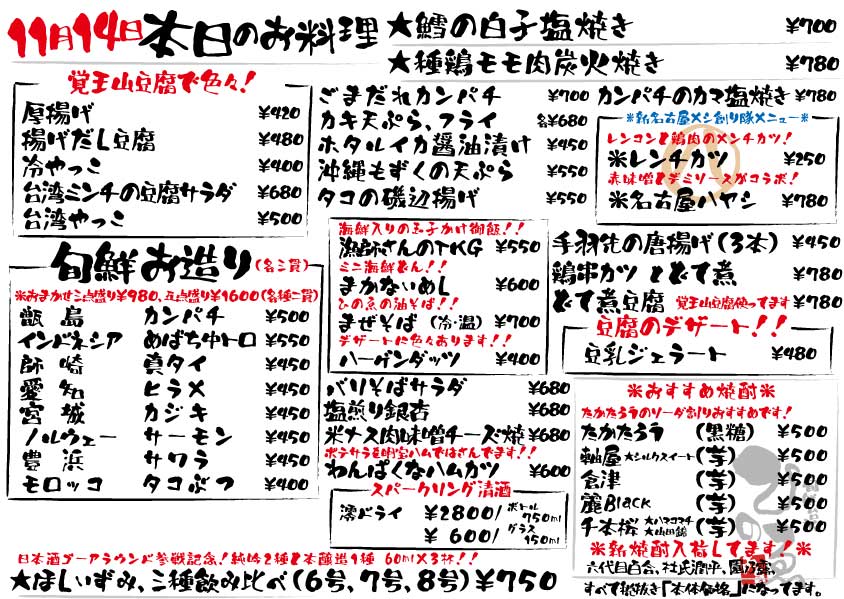 11月14日 本日のお料理
★鱈の白子塩焼き ¥700
★種鶏モモ肉炭火焼き ¥780
覚王山豆腐で色々!
厚揚げ ¥420
揚げだし豆腐 ¥480
冷やっこ ¥400
台湾ミンチの豆腐サラダ ¥680
台湾やっこ ¥500
旬鮮お造り (各三貫)
※おまかせ三点盛り¥980、五点盛り¥1600(各種二貫)
甑島 カンパチ ¥500
インドネシア めばち中トロ ¥550
師崎 真タイ ¥450
愛知 ヒラメ ¥450
宮城 カジキ ¥450
ノルウェー サーモン ¥450
豊浜 サワラ ¥450
モロッコ タコぶつ ¥400
ごまだれカンパチ ¥700
カキ天ぷら、フライ 各¥680
ホタルイカ醤油漬け ¥450
沖縄もずくの天ぷら ¥550
タコの磯辺揚げ ¥550
海鮮入りの玉子かけ御飯!!
漁師さんのTKG ¥550
ミニ海鮮どん!!
まかないめし ¥600
ひの魚の油そば!!
まぜそば (冷・温) ¥700
デザートに色々あります!!
ハーゲンダッツ ¥400
バリそばサラダ ¥680
塩煎り銀杏 ¥680
米ナス肉味噌チーズ焼 ¥680
ポテサラを明宝ハムではさんでます!!
わんぱくなハムカツ ¥600
スパークリング清酒
澪ドライ ¥2800/ボトル750ml
¥600/グラス150ml
カンパチのカマ塩焼き ¥780
※新名古屋メシ創り隊メニュー※
レンコンと鶏肉のメンチカツ!
※レンチカツ ¥250
赤味噌とデミソースがコラボ!
※名古屋ハヤシ ¥780
手羽先の唐揚げ(3本) ¥450
鶏串カツ とどて煮 ¥780
どて煮豆腐 覚王山豆腐使ってます ¥780
豆腐のデザート!!
豆乳ジェラート ¥480
※おすすめ焼酎※
たかたろうのソーダ割りおすすめです!
たかたろう (黒糖) ¥500
軸屋 ★シルクスイート (芋) ¥500
倉津 (芋) ¥500
麗Black (芋) ¥500
千本桜 ★ハマコマチ ★山田錦 (芋) ¥500
※新焼酎入荷してます!※
六代目百合、杜氏潤平、
すべて税抜き「本体価格」になってます。
日本酒ゴーアラウンド参戦記念!純吟2種と本醸造1種 60ml×3杯!!
★ほしいずみ、三種飲み比べ(6号、7号、8号)¥750